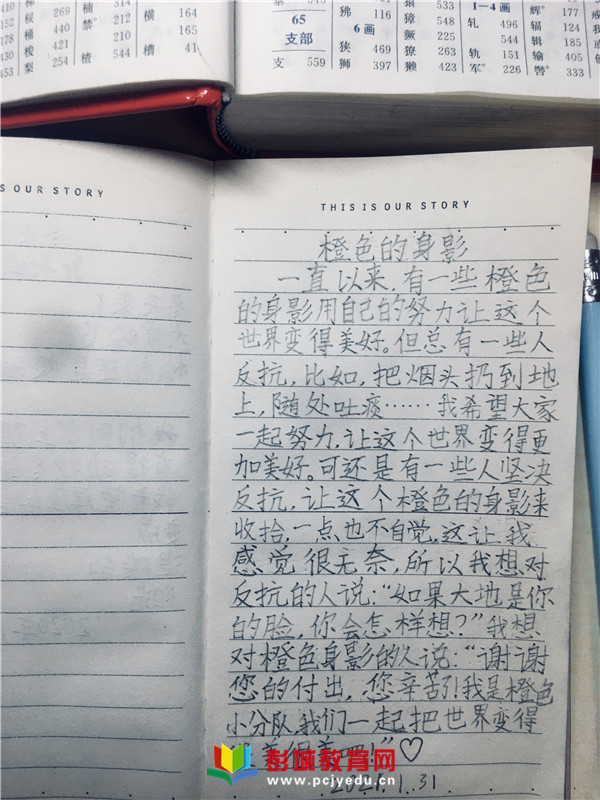 410
槐
269
314
横
164
178
桶
440
禁
210
165
梭
421
楂
槽
41
453
梨
254
544
65
支部
支 559
狒 116
6画
狭 469
狮 397
533
獐 548
獗 225
263
獭 423
1—4画
轧 496
544
轨 151
军 226
辉 177
辐 124
辑 185
输 405
辔
S OUR STORY
THIS IS OUR STORY
橙色的身影
一直以来,有一些橙色
的身影用自己的努力让这个
世界变得美好。但总有一些人
反抗,比如,把烟头扔到地
上,随处吐痰……我希望大家
一起努力,让这个世界变得更
加美好。可还是有一些人坚决
反抗,让这个橙色的身影来
收拾,一点也不自觉,这让我
感觉很无奈,所以我想对
反抗的人说:“如果大地是你
的脸,你会怎样想?”我想
对橙色身影的人说:“谢谢
您的付出,您辛苦了!我是橙色
小分队,我们一起把世界变得
美得美吧!”♡
2021.1.31
彭城教育网
www.pcjyedu.cn